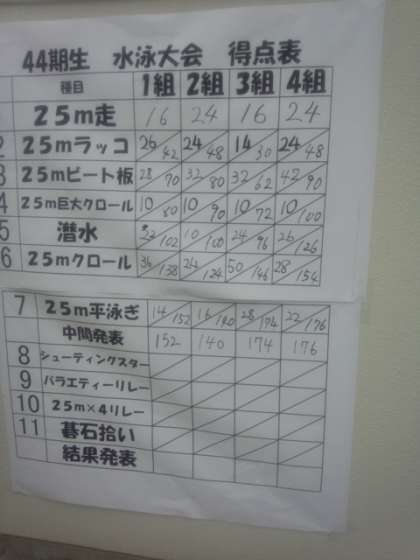 44期生 水泳大会 得点表
種目 1組 2組 3組 4組
25m走 16 24 16 24
2 25mラッコ 26/42 24/48 14/30 24/48
3 25mビート板 28/70 32/80 32/62 42/90
4 25m巨大クロール 10/80 10/90 10/72 10/100
5 潜水 22/102 10/100 24/96 26/126
6 25mクロール 36/138 24/124 50/146 28/154
7 25m平泳ぎ 14/152 16/140 28/174 22/176
中間発表 152 140 174 176
8 シューティングスター
9 バラエティーリレー
10 25m×4リレー
11 碁石拾い
結果発表